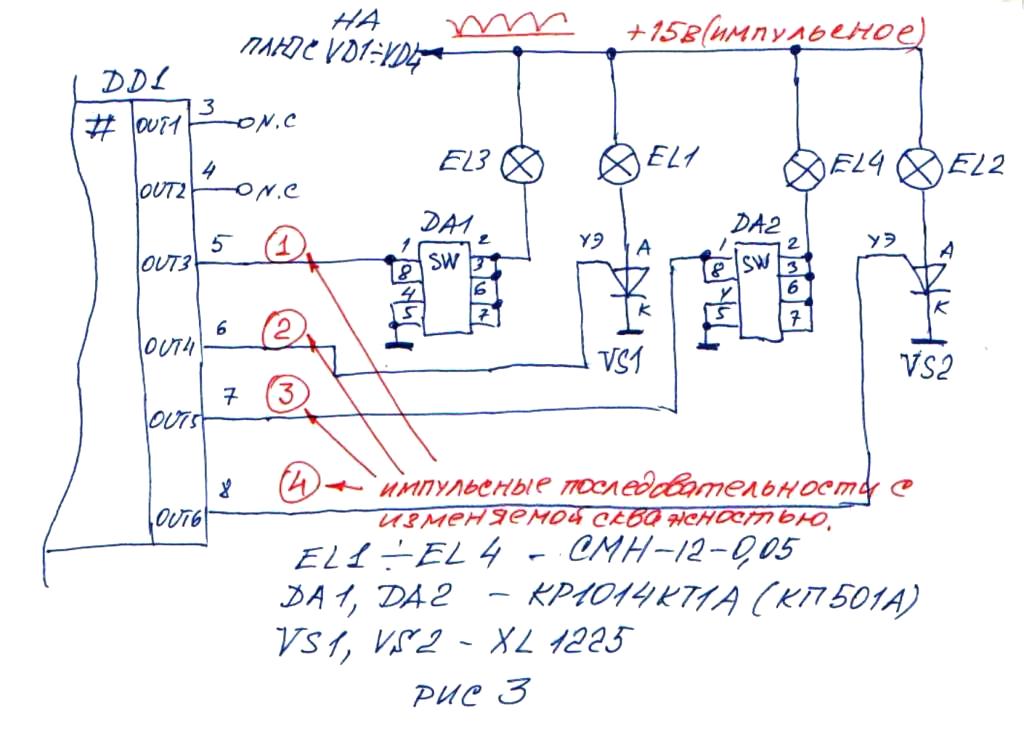 НА
ПЛЮС VD1÷VD4
+15В(ИМПУЛЬСНОЕ)
DD1
#
OUT1
3
N.C
OUT2
4
N.C
OUT3
5
1
OUT4
6
2
OUT5
7
3
OUT6
8
4
EL3
EL1
EL4
EL2
DA1
SW
1
8
4
5
2
3
6
7
УЭ
А
К
VS1
DA2
SW
1
8
4
5
2
3
6
7
УЭ
А
К
VS2
ИМПУЛЬСНЫЕ ПОСЛЕДОВАТЕЛЬНОСТИ С
ИЗМЕНЯЕМОЙ СКВАЖНОСТЬЮ.
EL1÷EL4 - СМН-12-0,05
DA1, DA2 - КР1014КТ1А (КП501А)
VS1, VS2 - XL1225
РИС 3